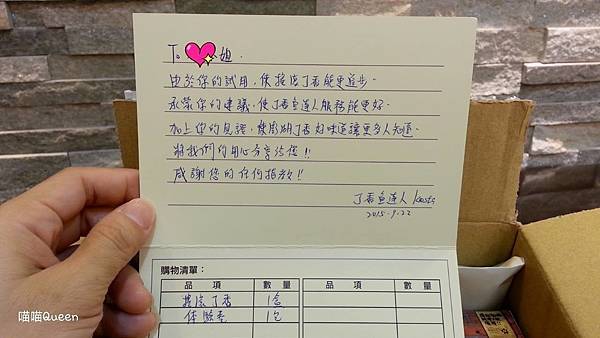 To 姐.
由於你的試用,使搖滾丁香能更進步.
承蒙你的建議,使丁香魚達人服務能更好.
加上你的見證,使澎湖丁香好味道讓更多人知道.
將我們的用心分享給您!!
感謝您的任何指教!!
丁香魚達人
2015.9.22
購物清單:
品 項 數 量 品 項 數 量
搖滾丁香 1盒
体驗本 1包
喵喵Queen